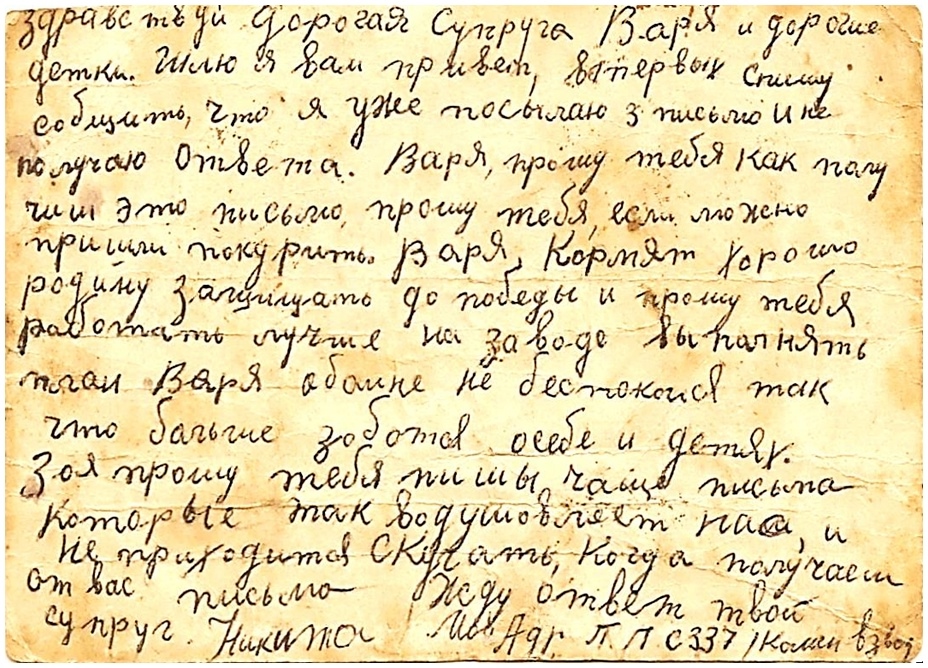 здравствуй дорогая Супруга Варя и дорогие
детки. Шлю я вам привет, впервых спишу
собщить, что я уже посылаю 3 письмо и не
получаю ответа. Варя, прошу тебя как полу
чиш это письмо, прошу тебя, если можно
пришли покурить. Варя, Кормят хорошо
родину защищать до победы и прошу тебя
работать лучше на заводе выпалнять
план Варя обомне не беспокойся так
что больше зоботся осебе и детях.
Зоя прошу тебя пишы чаще письма
Которые так водушовляет нас, и
не приходится Скучать, Когда получаеш
от вас письмо Жду ответ твой
супруг Никита Мой Адр. П П С 337